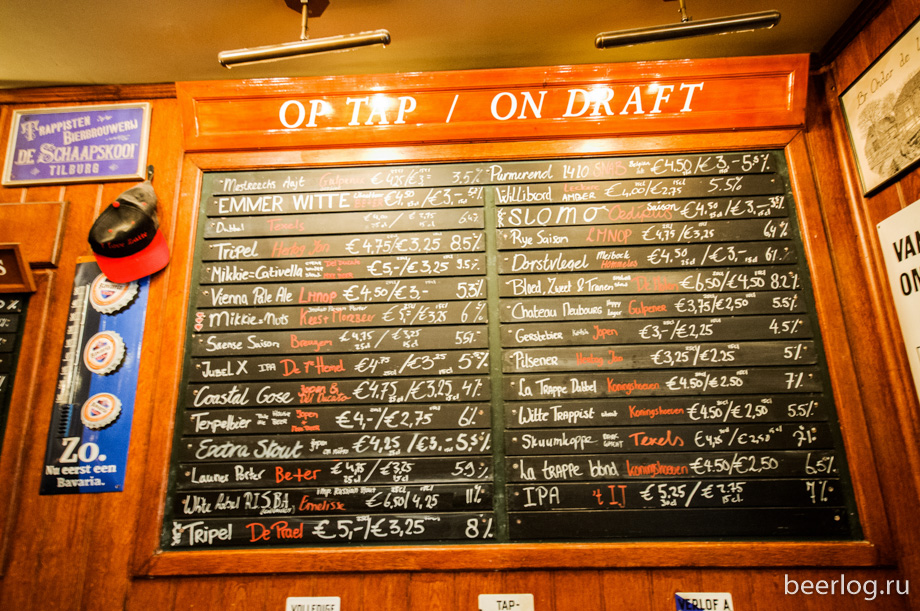 OP TAP / ON DRAFT
TRAPPISTEN
BIERBROUWERIJ
DE SCHAAPSKOOI
TILBURG
Mestreechs Aajt Gulpener 3,5%
EMMER WITTE €4,50/€3,-
Dubbel Texels
Tripel Hertog Jan €4,75/€3,25 8.5%
Mikkie-Cativella €5,-/€3,25 9.5%
Vienna Pale Ale LHNOP €4,50/€3,- 5.3%
Mikkie=Nuts Kees+ €5,-/€3,25 6%
Saense Saison Breugem €4,75/€3,25
Jubel X IPA De 7e Hemel €4,75/€3,25
Coastal Gose €4,75/€3,25 4%
Tempelbier Jopen €4,-/€2,75 6%
Extra Stout Jopen €4,25/€3,-
Porter Beter €4,75/€3,25 5.9%
White Label R.I.S. B.A. Imp. Russian Stout Emelisse €6,50/4,25 11%
Tripel De Prael €5,-/€3,25 8%
Purmerend 1410 SMIB €4,50/€3,- 5%
Willibrord Leckere AMBER €4,00/€2,75 5.5%
SLOMO Oedipus Saison €4,50/€3,-
Rye Saison LHNOP €4,75/€3,25 6.4%
Dorstvlegel Meibock Hommeles €4.50/€3,- 6.1%
Bloed, Zweet & Tranen De Molen €6,50/€4,50 8.2%
Chateau Neubourg Gulpener €3,75/€2,50 5.5%
Gerstebier Jopen €3,-/€2,25 4,5%
Pilsener Hertog Jan €3,25/€2,25 5%
La Trappe Dubbel Koningshoeven €4.50/€2,50 7%
Witte Trappist Koningshoeven €4.50/€2,50 5.5%
Skuumkoppe Texels €4,75/€2,50
La trappe blond Koningshoeven €4.50/€2,50 6,5%
IPA 't IJ €5,25/€2,75 7%
Zo.
Nu eerst een
Bavaria.
VAN
ON
VOLLEDIGE
TAP-
VERLOF A
beerlog.ru